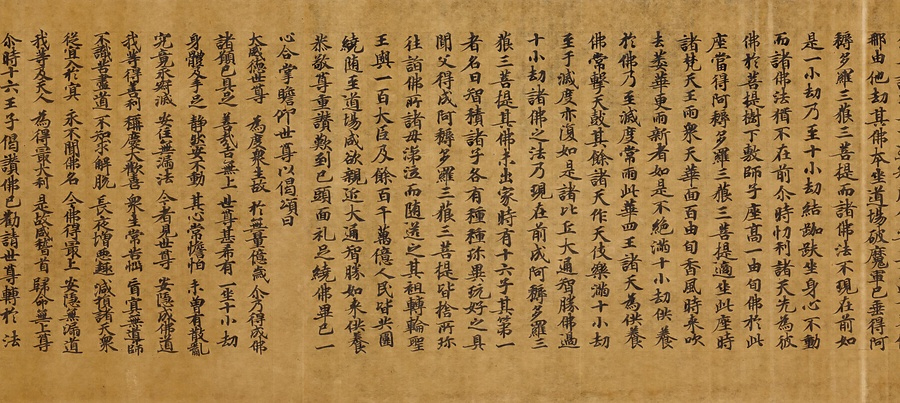 那由他劫其佛本坐道場破魔軍已垂得阿
耨多羅三藐三菩提而諸佛法不現在前如
是一小劫乃至十小劫結跏趺坐身心不動
而諸佛法猶不在前尒時忉利諸天先為彼
佛於菩提樹下敷師子座高一由旬佛於此
座當得阿耨多羅三藐三菩提適坐此座時
諸梵天王雨衆天華面百由旬香風時来吹
去萎華更雨新者如是不絕滿十小劫供養
於佛乃至滅度常雨此華四王諸天為供養
佛常擊天鼓其餘諸天作天伎樂滿十小劫
至于滅度亦復如是諸比丘大通智勝佛過
十小劫諸佛之法乃現在前成阿耨多羅三
藐三菩提其佛未出家時有十六子其第一
者名曰智積諸子各有種種珎異玩好之具
聞父得成阿耨多羅三藐三菩提皆捨所珎
往詣佛所諸母涕泣而随送之其祖轉輪聖
王與一百大臣及餘百千萬億人民皆共圍
繞随至道場咸欲親近大通智勝如来供養
恭敬尊重讃歎到已頭面礼足繞佛畢已一
心合掌瞻仰世尊以偈頌曰
大威德世尊 為度衆生故 於無量億歲 尒乃得成佛
諸願已具足 善哉吉無上 世尊甚希有 一坐十小劫
身體及手足 静然安不動 其心常憺怕 未曽有散亂
究竟永寂滅 安住無漏法 今者見世尊 安隱成佛道
我等得善利 稱慶大歡喜 衆生常苦惱 盲冥無導師
不識苦盡道 不知求解脫 長夜増惡趣 減損諸天衆
從冥入於冥 永不聞佛名 今佛得最上 安隱無漏道
我等及天人 為得最大利 是故咸稽首 歸命無上尊
尒時十六王子偈讃佛已勸請世尊轉於法